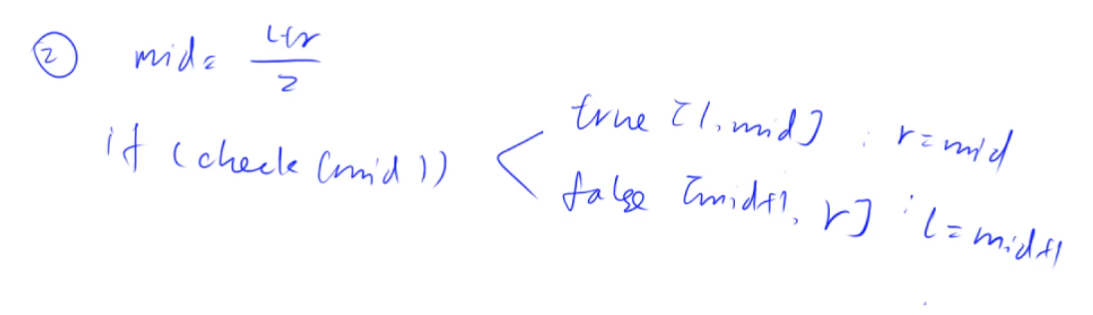 ② mid = l+r / 2
if (check(mid))
true [l, mid] : r=mid
false [mid+1, r] : l=mid+1